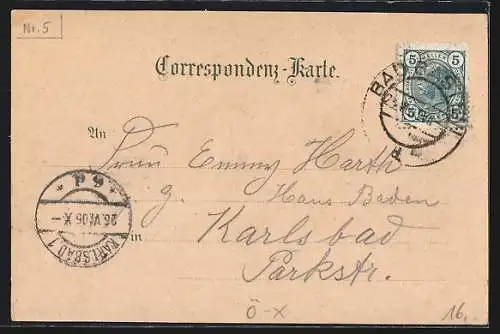 Nr. 5
Correspondenz-Karte.
5 HELLER 5
5 5
BAD
An
Frau Emmy Harth
P9
26. VI. 05 X
KARLSBAD 1
g. Haus Baden
in Karlsbad
Parkstr.
Ö-X
16.